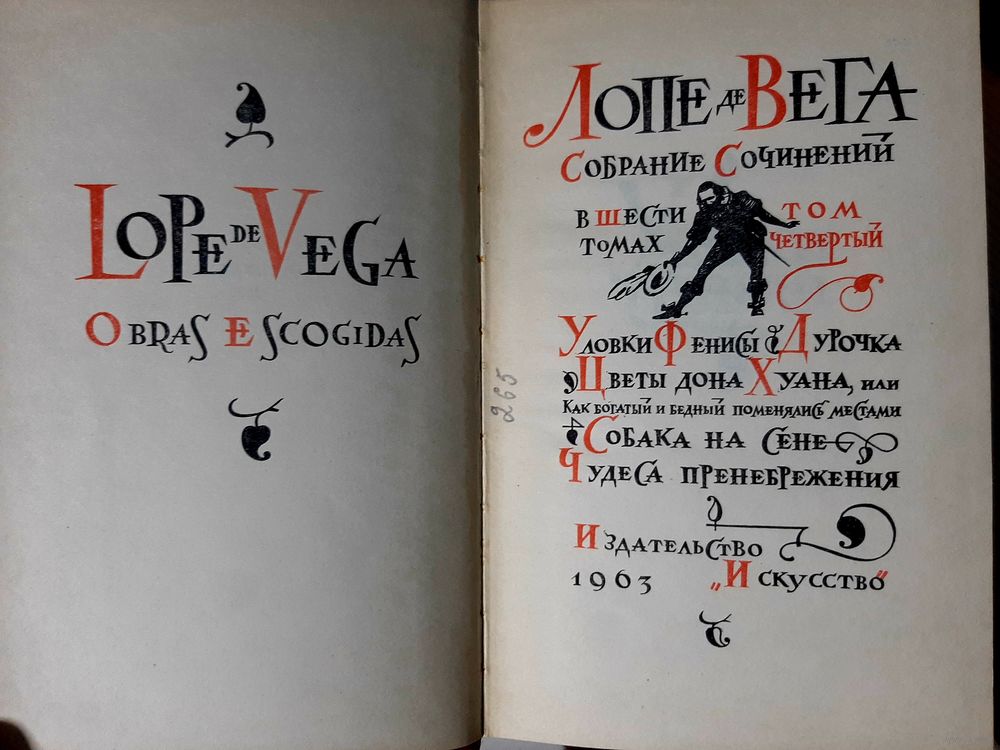 LOPE DE VEGA
OBRAS ESCOGIDAS
265
ЛОПЕ ДЕ ВЕГА
СОБРАНИЕ СОЧИНЕНИЙ
В ШЕСТИ ТОМАХ
ТОМ ЧЕТВЕРТЫЙ
УЛОВКИ ФЕНИСЫ ДУРОЧКА
ЦВЕТЫ ДОНА ХУАНА, ИЛИ
КАК БОГАТЫЙ И БЕДНЫЙ ПОМЕНЯЛИСЬ МЕСТАМИ
СОБАКА НА СЕНЕ
ЧУДЕСА ПРЕНЕБРЕЖЕНИЯ
ИЗДАТЕЛЬСТВО
1963 „ИСКУССТВО"